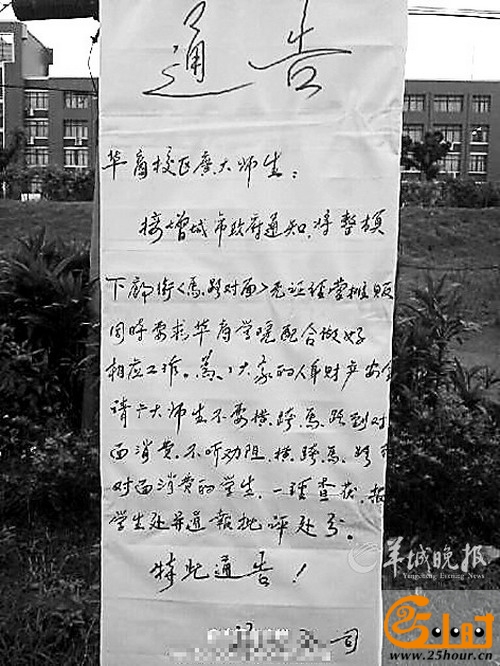 通告
华商校区广大师生：
接增城市政府通知，将整顿
下廊街〈马路对面〉无证经营摊贩
同时要求华商学院配合做好
相应工作。为了大家的人身财产安全
请广大师生不要横跨马路到对
面消费，不听劝阻，横跨马路到
对面消费的学生，一经查获，报
学生处并通报批评处分。
特此通告！
司
羊城晚报
Yangcheng Evening News
25小时
www.25hour.cn